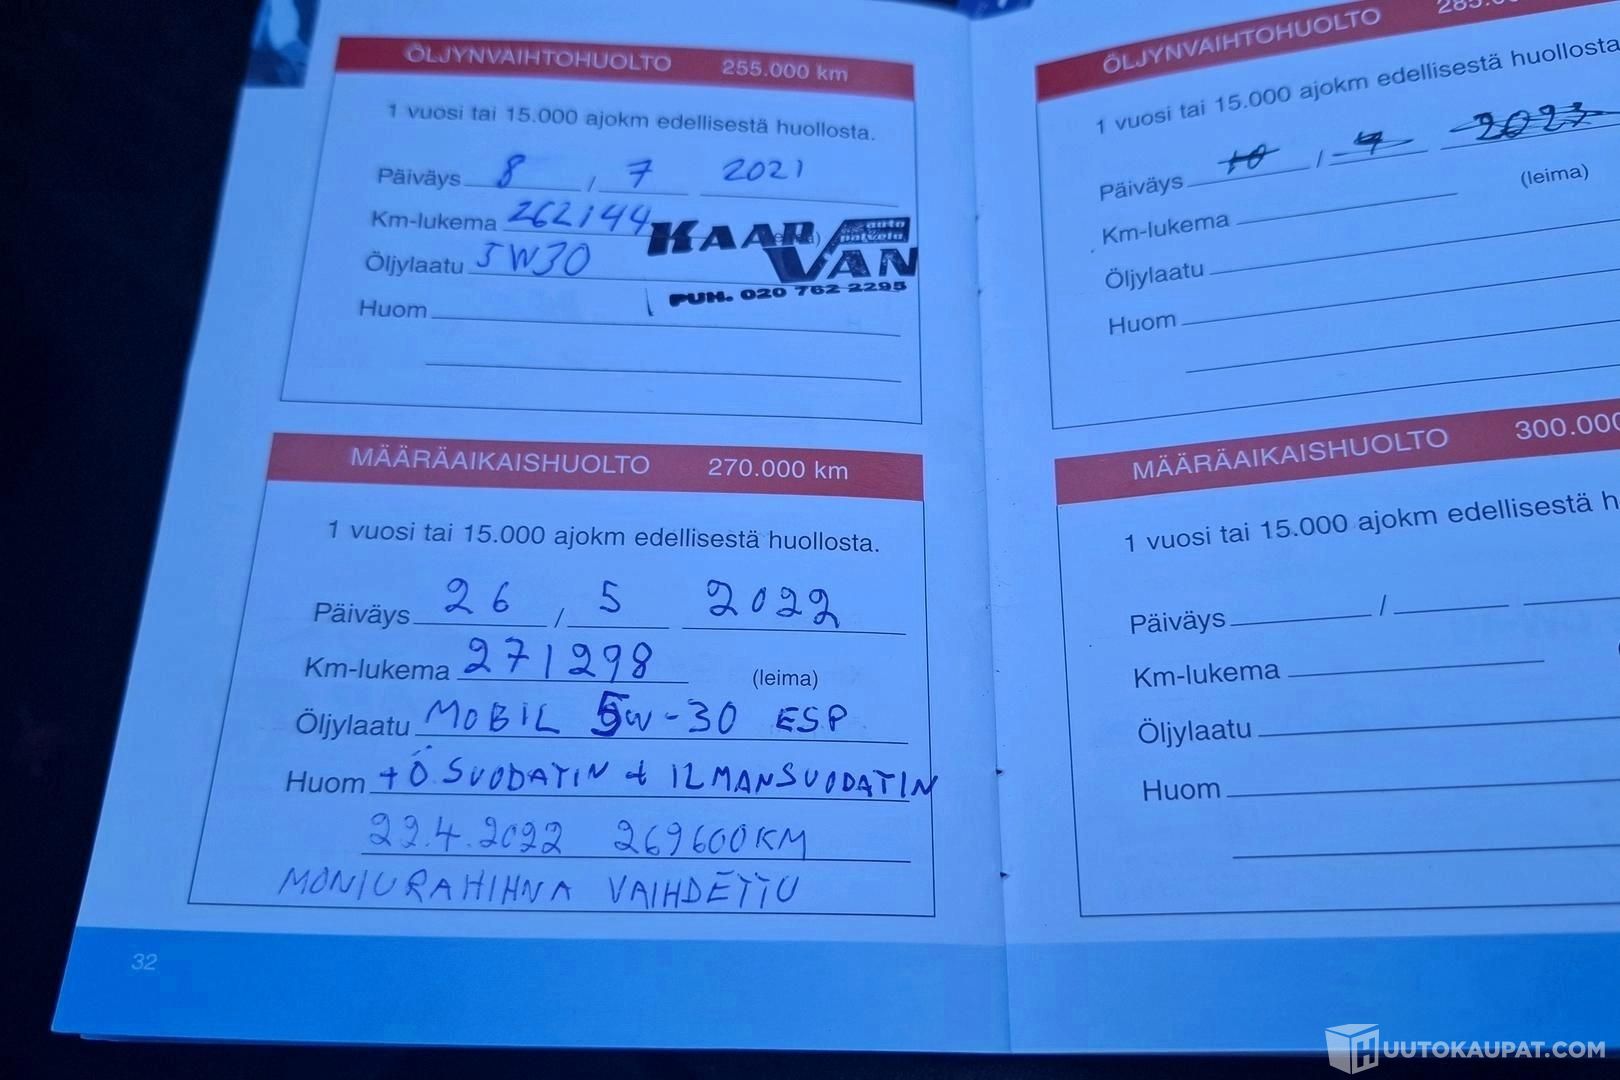 ÖLJYNVAIHTOHUOLTO 255.000 km
1 vuosi tai 15.000 ajokm edellisestä huollosta.
Päiväys 8 / 7 2021
Km-lukema 262144
Öljylaatu 5W30
KAAR VAN
auto palvelu
PUH. 020 762 2295
Huom
MÄÄRÄAIKAISHUOLTO 270.000 km
1 vuosi tai 15.000 ajokm edellisestä huollosta.
Päiväys 26 / 5 2022
Km-lukema 271298 (leima)
Öljylaatu MOBIL 5W-30 ESP
Huom + Ö.SUODATIN + ILMANSUODATIN
22.4.2022 269600KM
MONIURAHIHNA VAIHDETTU
32
ÖLJYNVAIHTOHUOLTO
1 vuosi tai 15.000 ajokm edellisestä huollosta
Päiväys 10 / 7 2023
(leima)
Km-lukema
Öljylaatu
Huom
MÄÄRÄAIKAISHUOLTO 300.000
1 vuosi tai 15.000 ajokm edellisestä h
Päiväys /
Km-lukema
Öljylaatu
Huom
HUUTOKAUPAT.COM